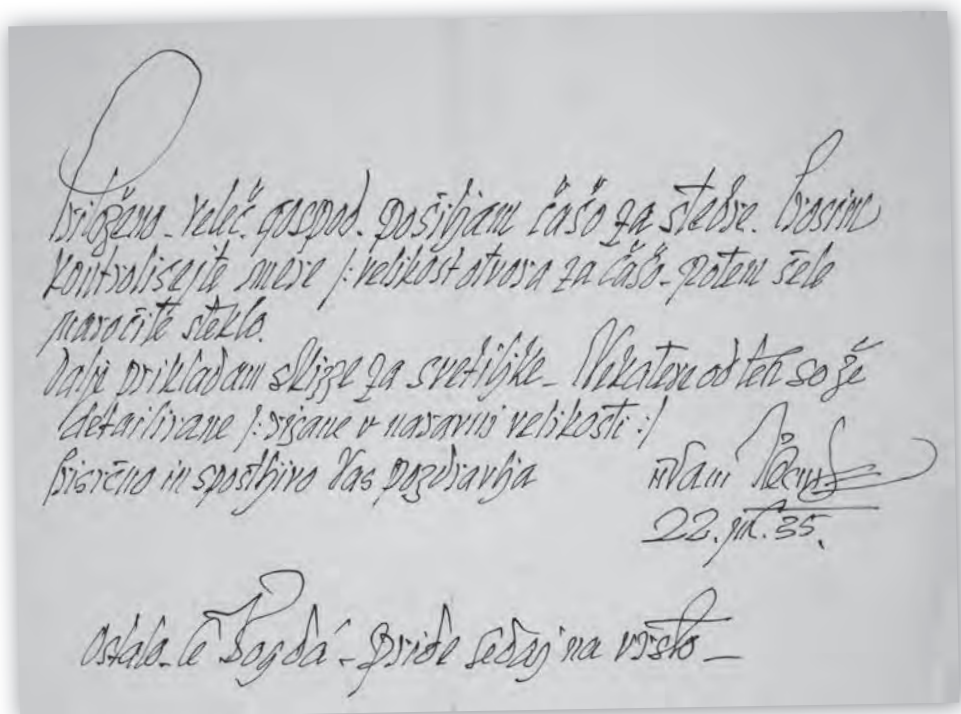 Priloženo - veleč. gospod. pošiljam čašo za stebre. Prosim
kontrolirajte mere /: velikost otvora za čašo - potem šele
naročite steklo.
Dalje prikladam skizze za svetiljke - Nekatere od teh so že
detailirane /: risane v naravni velikosti :/
Prisrčno in spoštljivo Vas pozdravlja vdani
22. 35.
Ostalo - če Bog dá - pride sedaj na vrsto -